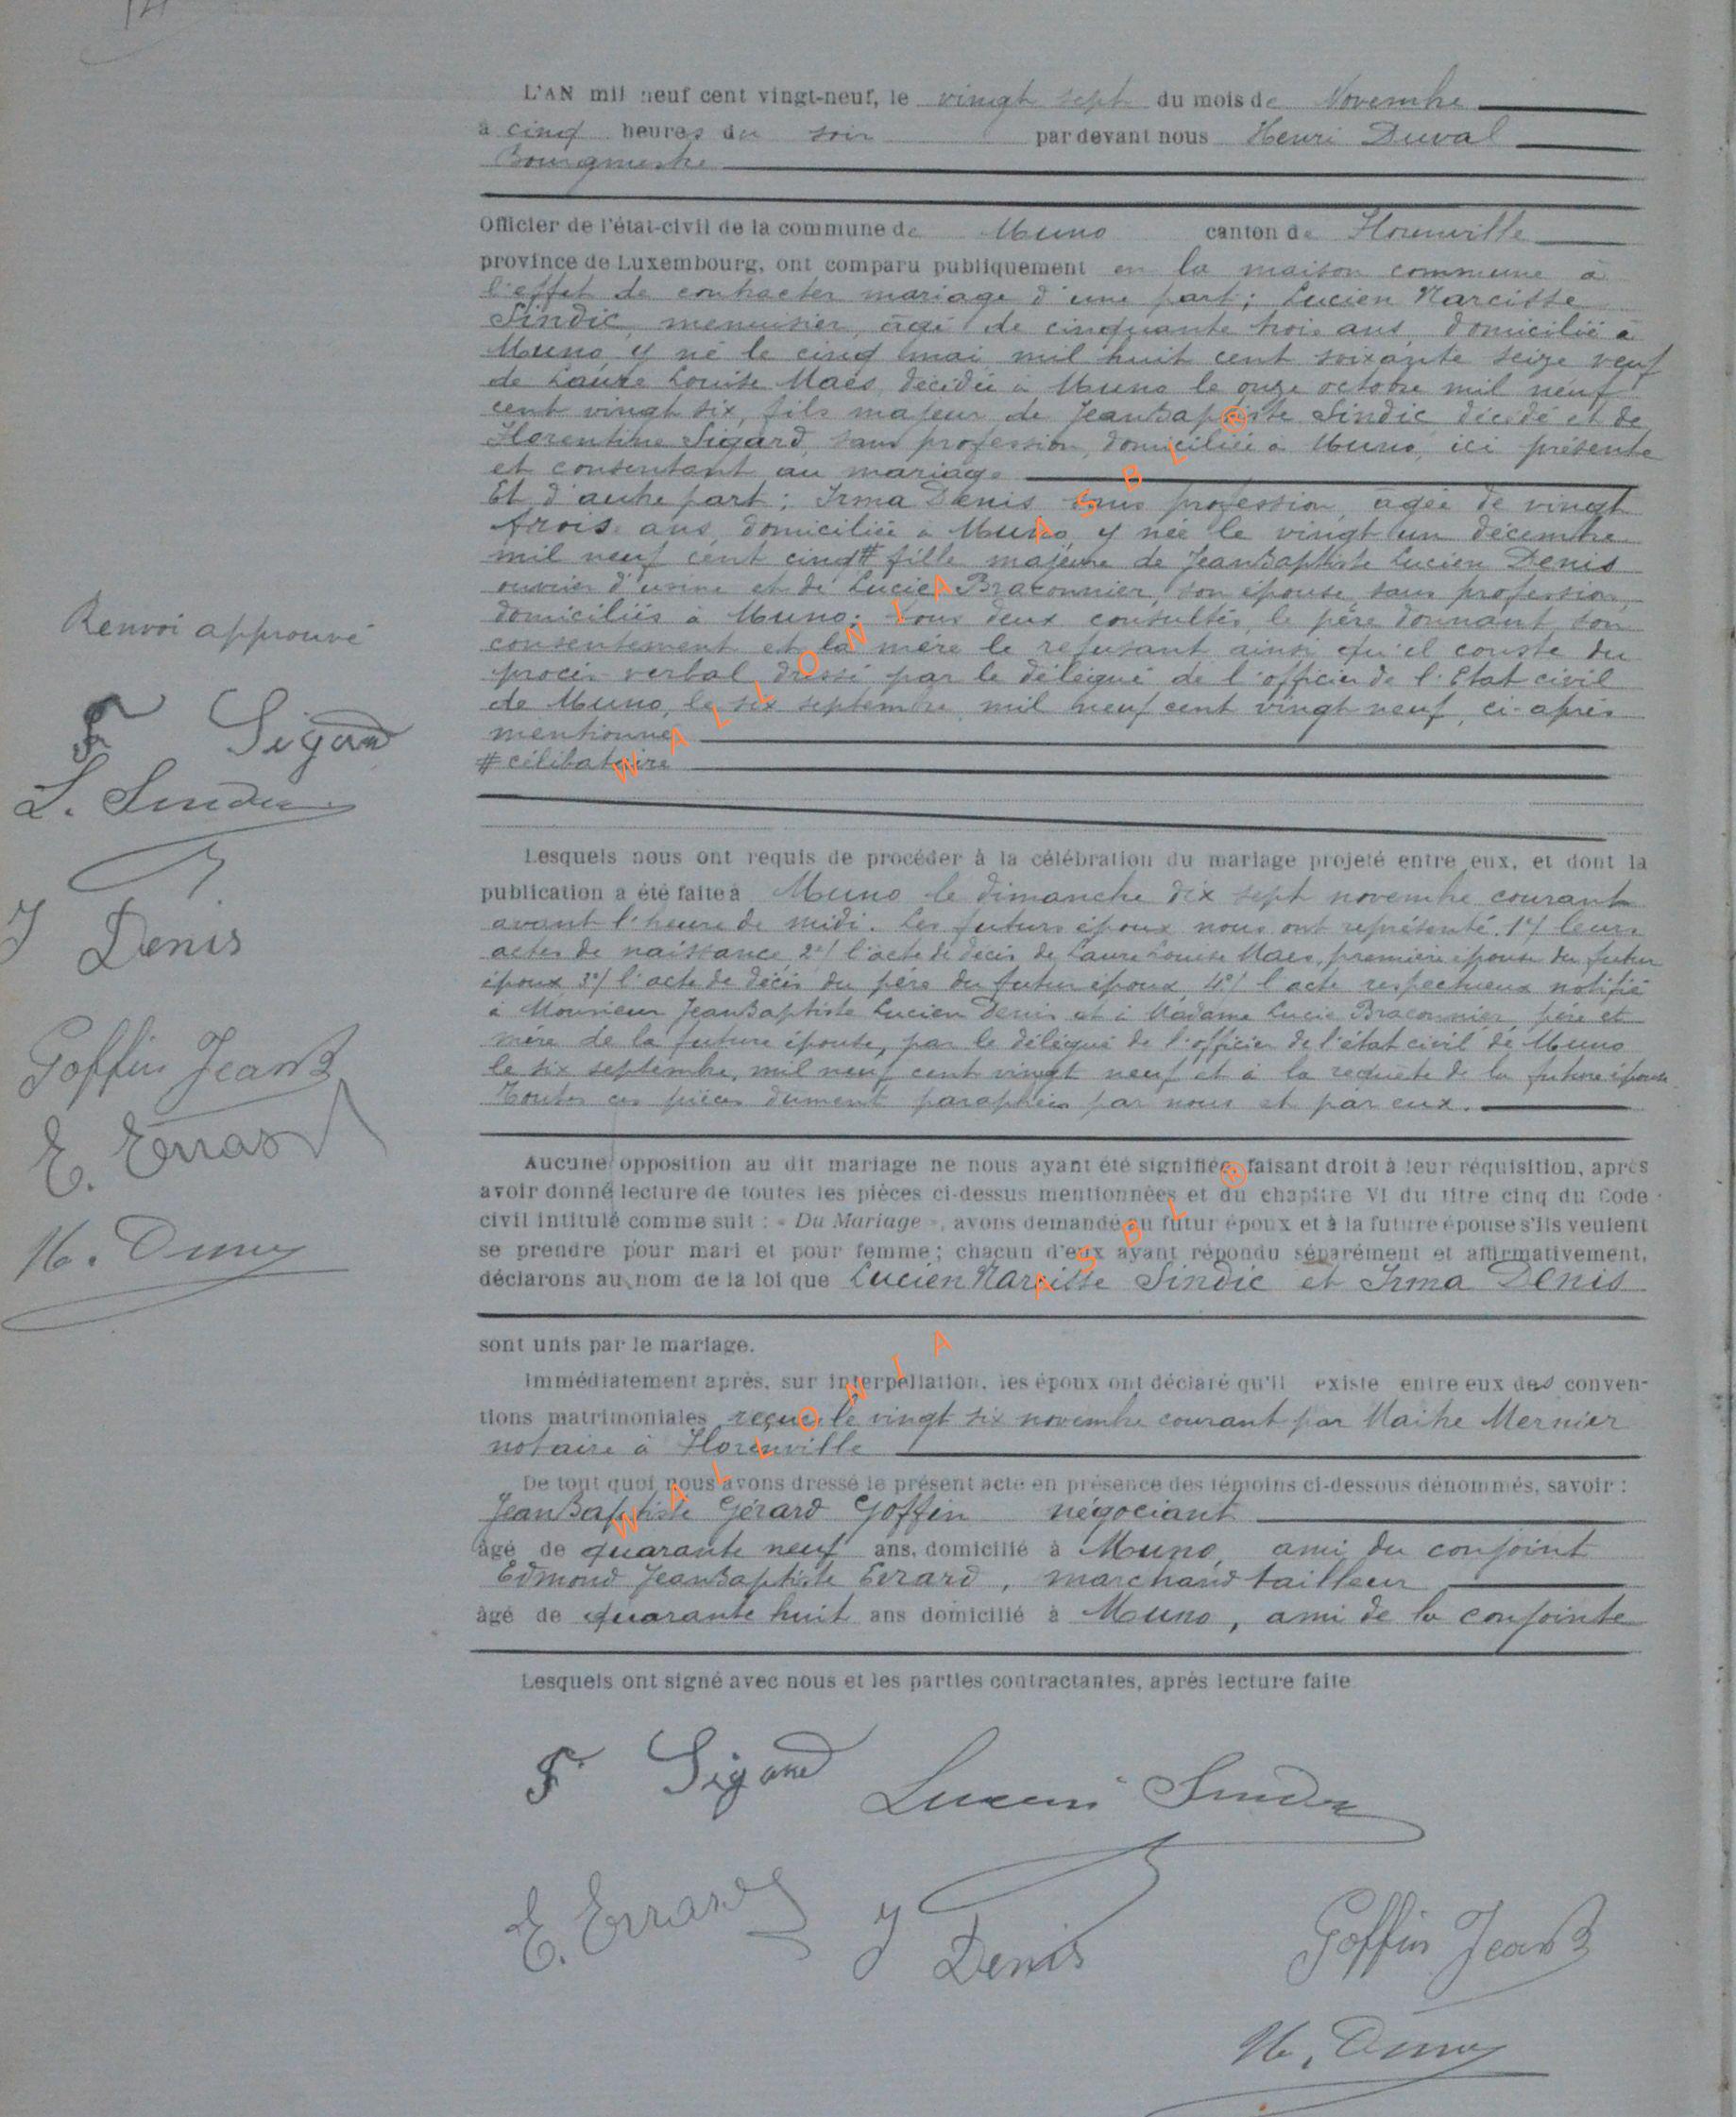 L'AN mil neuf cent vingt-neuf, le vingt sept du mois de Novembre
à cinq heures du soir par devant nous Henri Duval
Bourgmestre
Officier de l'état-civil de la commune de Muno canton de Florenville
province de Luxembourg, ont comparu publiquement en la maison commune à
l'effet de contracter mariage d'une part: Lucien Narcisse
Sindic, menuisier, âgé de cinquante trois ans, domicilié à
Muno, y né le cinq mai mil huit cent soixante seize veuf
de Laure Louise Maes, décédée à Muno le onze octobre mil neuf
cent vingt six, fils majeur de Jean Baptiste Sindic décédé et de
Florentine Sigard, sans profession, domiciliée à Muno, ici présente
et consentant au mariage
Et d'autre part: Irma Denis sans profession, âgée de vingt
trois ans, domiciliée à Muno, y née le vingt un décembre
mil neuf cent cinq # fille majeure de Jean Baptiste Lucien Denis
ouvrier d'usine et de Lucie Braconnier, son épouse, sans profession,
domiciliés à Muno; tous deux consultés, le père donnant son
consentement et la mère le refusant ainsi qu'il conste du
procès verbal dressé par le délégué de l'officier de l'Etat civil
de Muno, le six septembre mil neuf cent vingt neuf, ci-après
mentionné
# célibataire
Renvoi approuvé
F Sigard
L. Sindic
I Denis
Goffin Jean B
E. Erard
H. Duval
Lesquels nous ont requis de procéder à la célébration du mariage projeté entre eux, et dont la
publication a été faite à Muno le dimanche dix sept novembre courant
avant l'heure de midi. Les futurs époux nous ont représenté. 1°/ leurs
actes de naissance 2°/ l'acte de décès de Laure Louise Maes, première épouse du futur
époux 3°/ l'acte de décès du père du futur époux, 4°/ l'acte respectueux notifié
à Monsieur Jean Baptiste Lucien Denis et à Madame Lucie Braconnier, père et
mère de la future épouse, par le délégué de l'officier de l'état civil de Muno
le six septembre, mil neuf cent vingt neuf et à la requête de la future épouse.
Toutes ces pièces dûment paraphées par nous et par eux.
Aucune opposition au dit mariage ne nous ayant été signifiée, faisant droit à leur réquisition, après
avoir donné lecture de toutes les pièces ci-dessus mentionnées et du chapitre VI du titre cinq du Code
civil intitulé comme suit : « Du Mariage », avons demandé au futur époux et à la future épouse s'ils veulent
se prendre pour mari et pour femme; chacun d'eux ayant répondu séparément et affirmativement,
déclarons au nom de la loi que Lucien Narcisse Sindic et Irma Denis
sont unis par le mariage.
Immédiatement après, sur interpellation, les époux ont déclaré qu'il existe entre eux des conven-
tions matrimoniales reçues le vingt six novembre courant par Maître Mernier
notaire à Florenville
De tout quoi nous avons dressé le présent acte en présence des témoins ci-dessous dénommés, savoir :
Jean Baptiste Gérard Goffin négociant
âgé de quarante neuf ans, domicilié à Muno, ami du conjoint
Edmond Jean Baptiste Erard, marchand tailleur
âgé de quarante huit ans domicilié à Muno, ami de la conjointe
Lesquels ont signé avec nous et les parties contractantes, après lecture faite
F Sigard Lucien Sindic
E. Erard I Denis Goffin Jean B
H. Duval
WALLONIA ASBL ®
WALLONIA ASBL ®